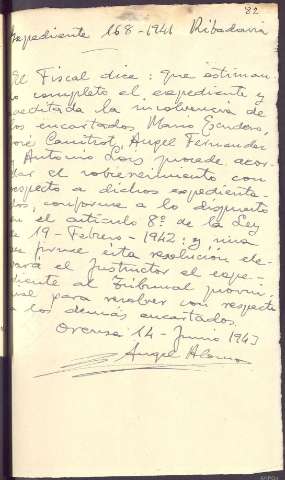 82
Expediente 168-1941 Ribadavia
El Fiscal dice: que estiman
do completo el expediente y
acreditada la insolvencia de
los encartados, Mario Escudero,
José Camitrot, Angel Fernandez
y Antonio Lois procede acor
dar el sobreseimiento con
respecto a dichos expedienta
dos, conforme a lo dispuesto
en el artículo 8º de la Ley
de 19-Febrero-1942: y una
vez firme esta resolución ele
vará el Instructor el expe
diente al Tribunal provin
cial para resolver con respecto
a los demás encartados.
Orense 14-Junio 1943
Angel Alonso